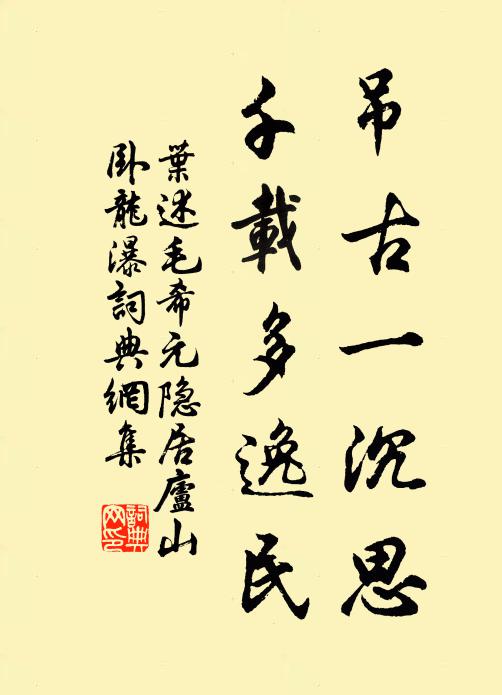 吊古一沉思
千載多逸民
葉述毛希元隐居廬山
卧龍瀑詞典網集
詞典
网印